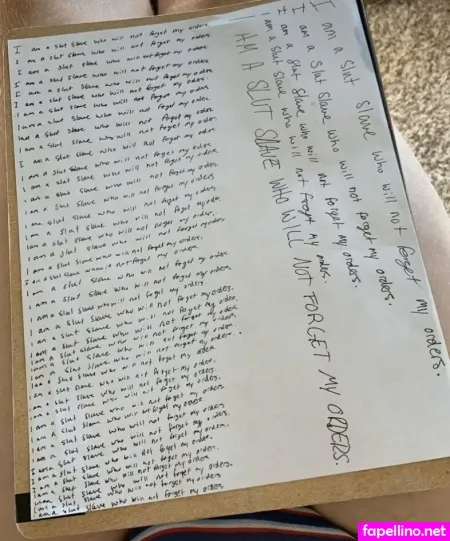 I am a slut slave who will not forget my orders
I am a slut slave who will not forget my orders.
I am a slut slave who will not forget my orders
I am a slut slave who will not forget my orders
I am a slut slave who will not forget my orders.
I am a slut slave who will not forget my orders
I am a slut slave who will not forget my orders.
I am a slut slave who will not forget my orders
I am a slut slave who will not forget my orders
I am a slut slave who will not forget my orders
I am a slut slave who will not forget my orders
I am a slut slave who will not forget my orders.
I am a slut slave who will not forget my orders
I am a slut slave who will not forget my orders
I am a slut slave who will not forget my orders
I am a slut slave who will not forget my orders.
I am a slut slave who will not forget my orders
I am a slut slave who will not forget my orders.
I am a slut slave who will not forget my orders.
I am a slut slave who will not forget my orders
I am a slut slave who will not forget my orders
I am a slut slave who will not forget my orders
I am a slut slave who will not forget my orders.
I am a slut slave who will not forget my orders.
I am a slut slave who will not forget my orders
I am a slut slave who will not forget my orders.
I am a slut slave who will not forget my orders
I am a slut slave who will not forget my orders.
I am a slut slave who will not forget my orders
I am a slut slave who will not forget my orders.
I am a slut slave who will not forget my orders.
I am a slut slave who will not forget my orders
I am a slut slave who will not forget my orders
I am a slut slave who will not forget my orders
I am a slut slave who will not forget my orders.
I am a slut slave who will not forget my orders.
I am a slut slave who will not forget my orders
I am a slut slave who will not forget my orders
I am a slut slave who will not forget my orders
I am a slut slave who will not forget my orders.
I am a slut slave who will not forget my orders
I am a slut slave who will not forget my orders
I am a slut slave who will not forget my orders
I am a slut slave who will not forget my orders.
I am a slut slave who will not forget my orders
I am a slut slave who will not forget my orders.
I am a slut slave who will not forget my orders.
I am a slut slave who will not forget my orders.
I am a slut slave who will not forget my orders.
I AM A SLUT SLAVE WHO WILL NOT FORGET MY ORDERS.
fapellino.net